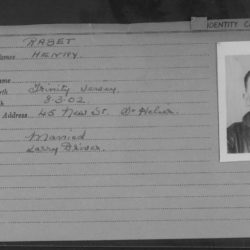 IDENTITY C
RABET
HENRY.
Trinity Jersey
3-3-02.
Address. 45 New St. St Helier
Married
Lorry Driver